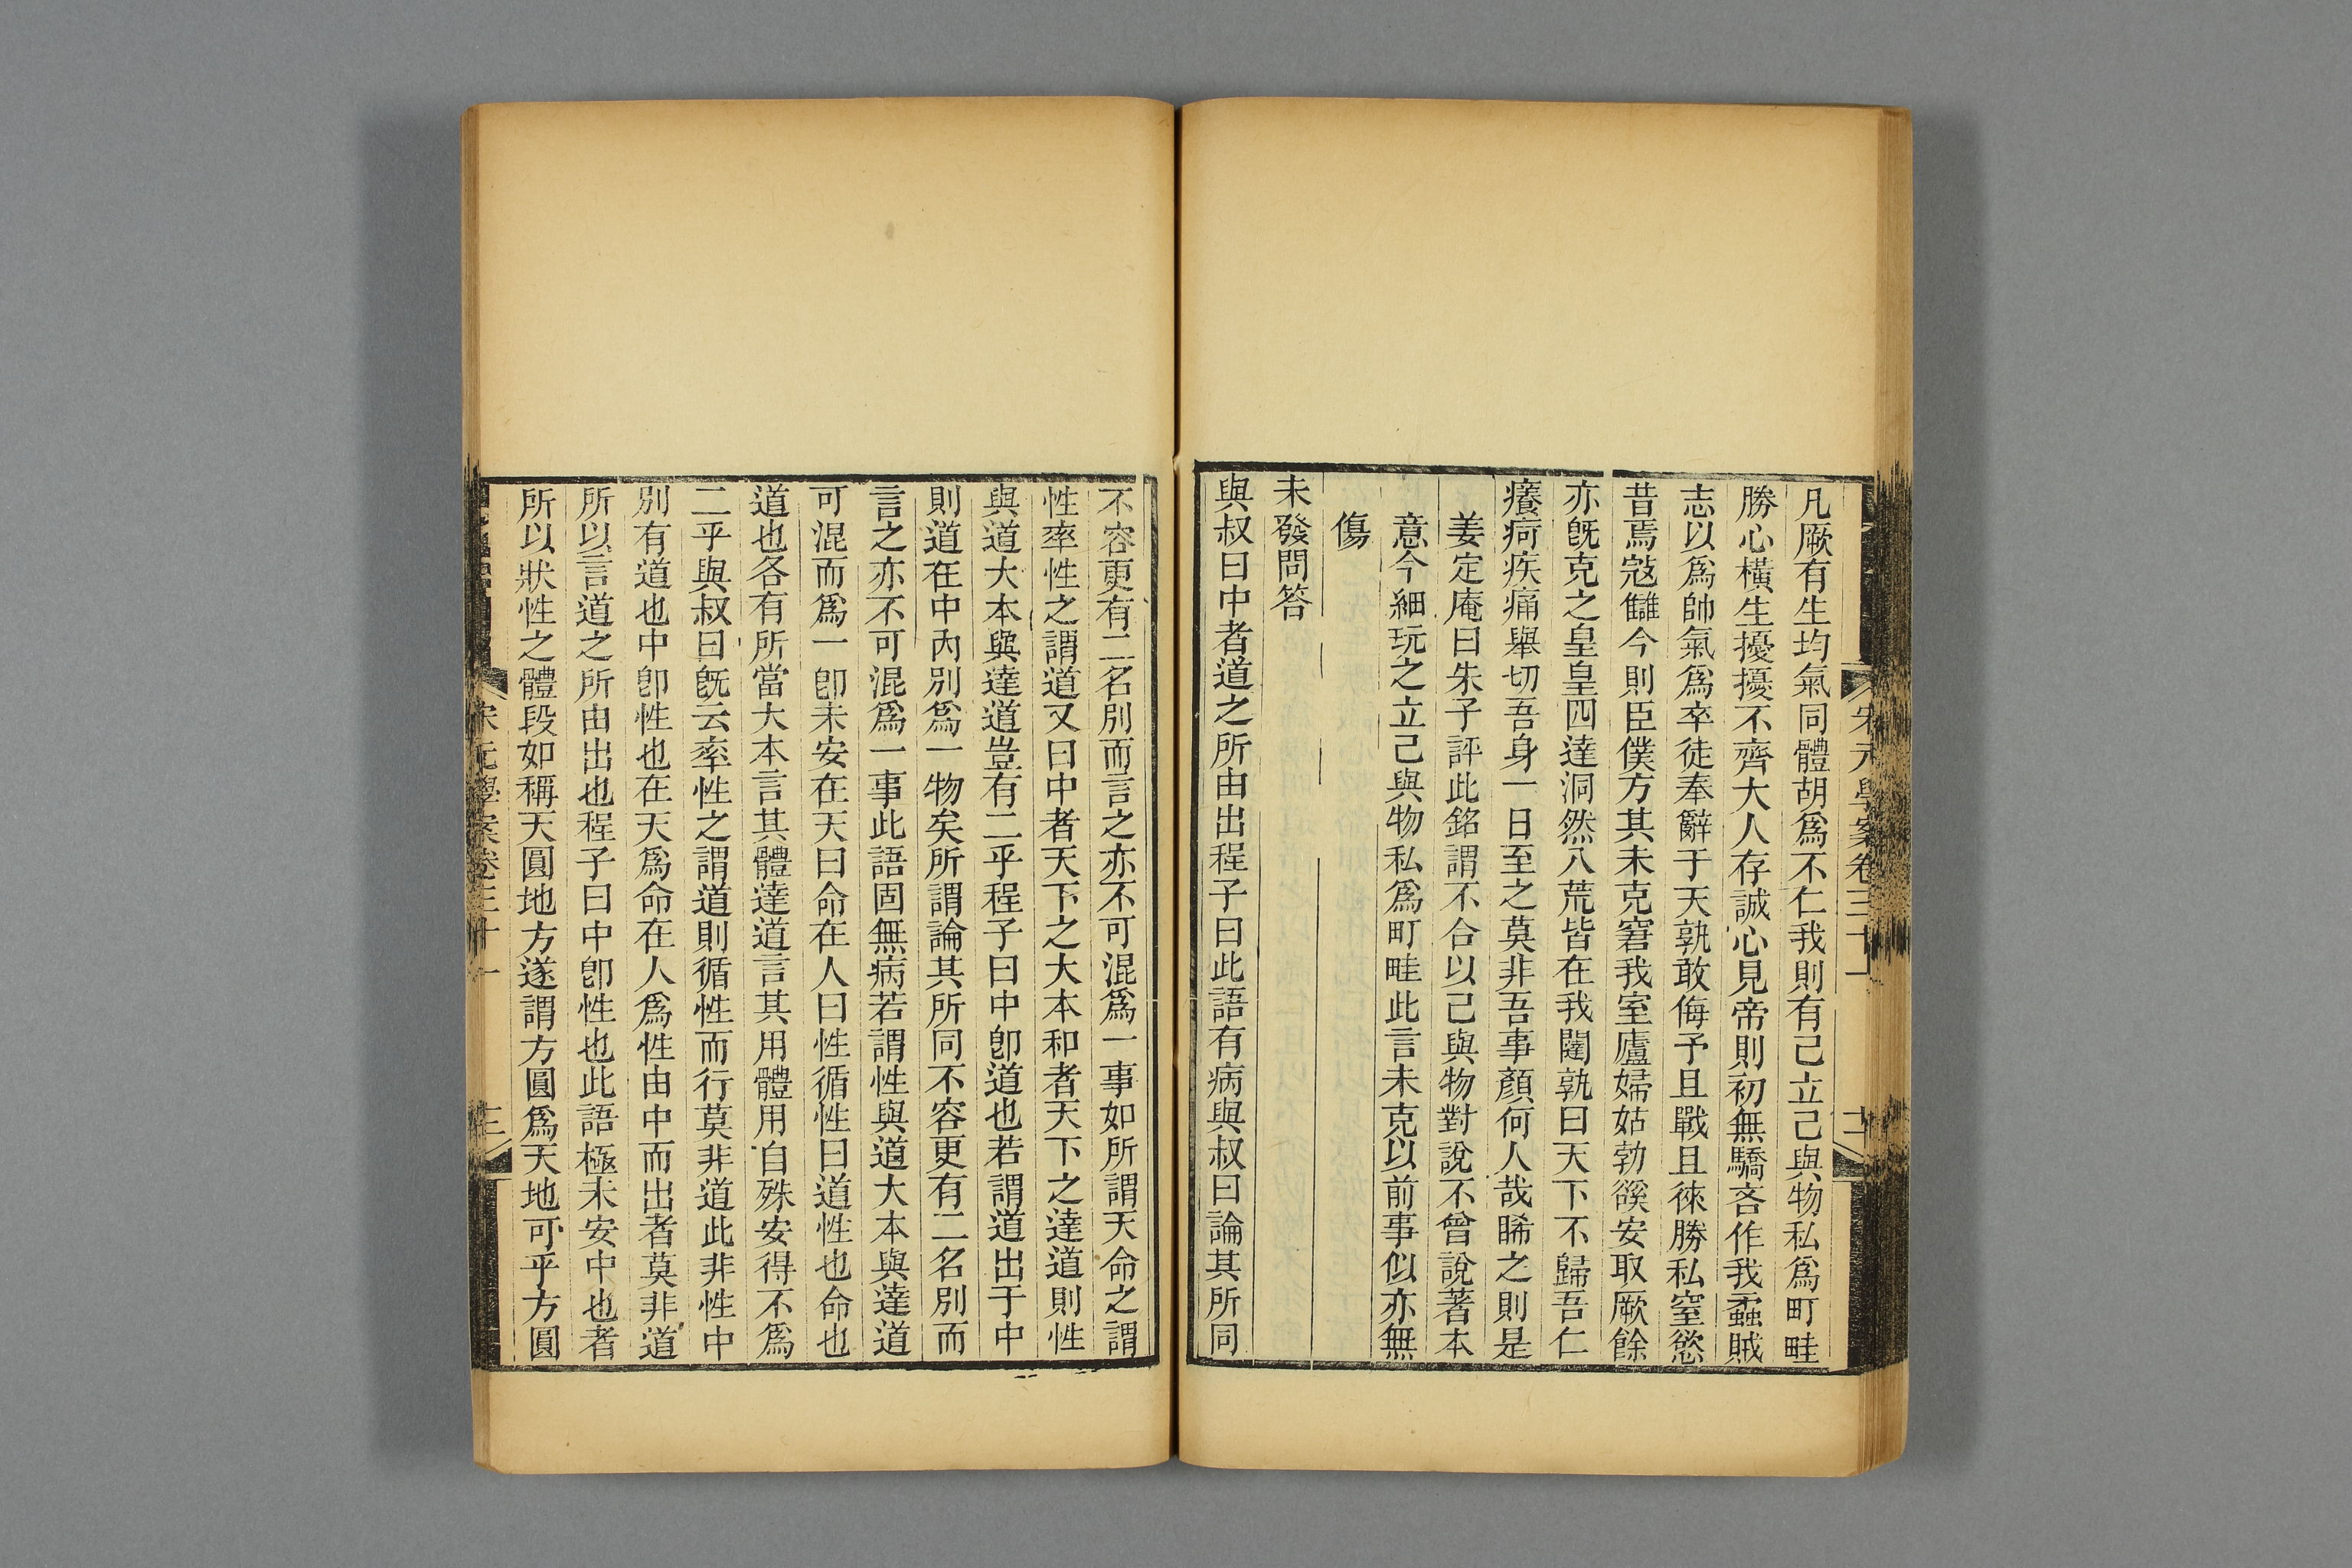 宋元學案卷三十一
凡厥有生均氣同體胡爲不仁我則有己立己與物私爲町畦
勝心橫生擾擾不齊大人存誠心見帝則初無驕吝作我蟊賊
志以爲帥氣爲卒徒奉辭于天孰敢侮予且戰且徠勝私窒慾
昔焉寇讎今則臣僕方其未克窘我室廬婦姑勃谿安取厥餘
亦旣克之皇皇四達洞然八荒皆在我闥孰曰天下不歸吾仁
癢疴疾痛舉切吾身一日至之莫非吾事顏何人哉睎之則是
姜定庵曰朱子評此銘謂不合以己與物對說不曾說著本
意今細玩之立己與物私爲町畦此言未克以前事似亦無
傷
未發問答
與叔曰中者道之所由出程子曰此語有病與叔曰論其所同
不容更有二名別而言之亦不可混爲一事如所謂天命之謂
性率性之謂道又曰中者天下之大本和者天下之達道則性
與道大本與達道豈有二乎程子曰中卽道也若謂道出于中
則道在中內別爲一物矣所謂論其所同不容更有二名別而
言之亦不可混爲一事此語固無病若謂性與道大本與達道
可混而爲一卽未安在天曰命在人曰性循性曰道性也命也
道也各有所當大本言其體達道言其用體用自殊安得不爲
二乎與叔曰旣云率性之謂道則循性而行莫非道此非性中
別有道也中卽性也在天爲命在人爲性由中而出者莫非道
所以言道之所由出也程子曰中卽性也此語極未安中也者
所以狀性之體段如稱天圓地方遂謂方圓爲天地可乎方圓
宋元學案卷三十一